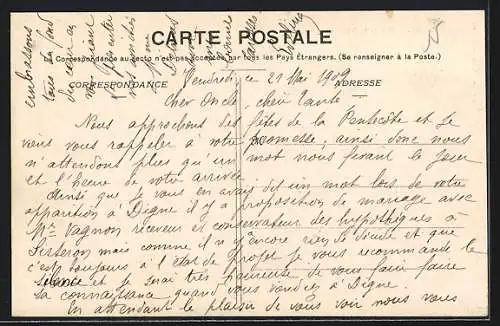 CARTE POSTALE
La Correspondance au recto n'est pas acceptée par tous les Pays Étrangers. (Se renseigner à la Poste.)
CORRESPONDANCE
ADRESSE
Vendredi, 21 Mai 1909
Cher Oncle, chère tante
Nous approchons des fêtes de la Pentecôte et je
viens vous rappeler à votre promesse, ainsi donc nous
n'attendons plus qu'un mot nous fixant le jour
et l'heure de votre arrivée
Ainsi que je vous en avais dit un mot lors de votre
apparition à Digne il y a proposition de mariage avec
Mr Vagnon receveur et conservateur des hypothèques à
Sisteron mais comme il n'y encore rien de décidé et que
c'est toujours à l'état de projet je vous recommande le
silence et je serai très heureuse de vous faire faire
sa connaissance quand vous viendrez à Digne.
En attendant le plaisir de vous voir nous vous
embrassons
tous